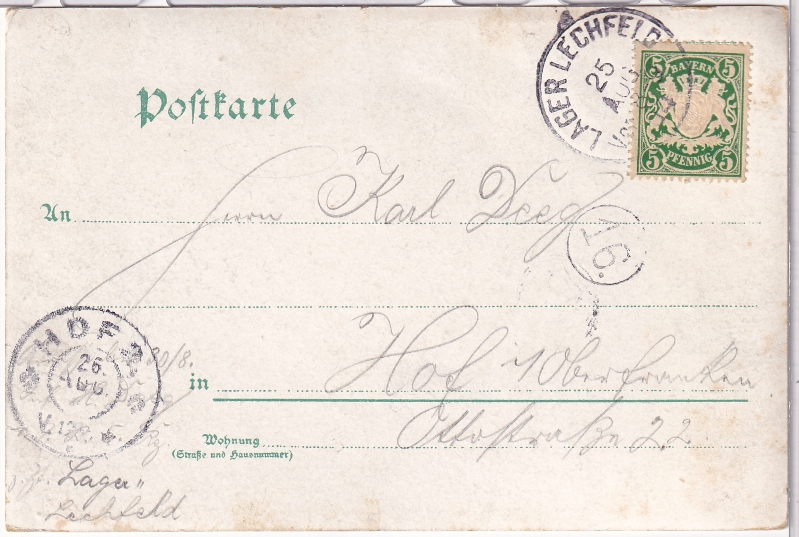 LAGER LECHFELD
25
AUG
BAYERN
5 5
5 5
PFENNIG
Postkarte
An Herrn Karl Deeg
16.
HOF 2
26.
AUG.
30/8.
in Hof i/Oberfranken
Wohnung
(Straße und Hausnummer)
Ottostraße 22
"Lager"
Lechfeld